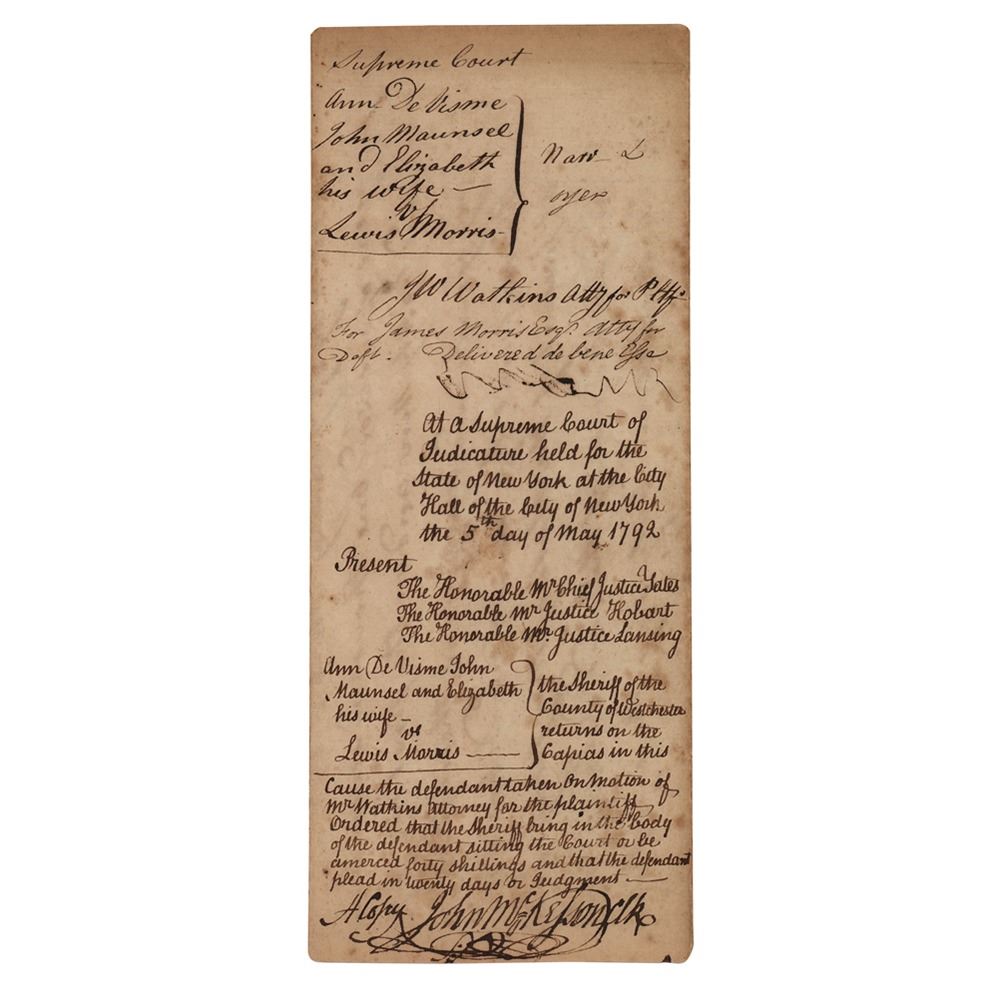 Supreme Court
Ann De Visme
John Maunsel
and Elizabeth
his wife —
vs
Lewis Morris
Narr &
oyer
JW Watkins Atty for Pltfs
For James Morris Esqr. Atty for
Deft. Delivered de bene Esse
At a Supreme Court of
Judicature held for the
State of New York at the City
Hall of the City of New York
the 5th day of May 1792
Present
The Honorable Mr Chief Justice Yates
The Honorable Mr Justice Hobart
The Honorable Mr. Justice Lansing
Ann De Visme John
Maunsel and Elizabeth
his wife —
vs
Lewis Morris —
the Sheriff of the
County of Westchester
returns on the
Capias in this
Cause the defendant taken On Motion of
Mr Watkins Attorney for the plaintiff
Ordered that the Sheriff bring in the body
of the defendant sitting the Court or be
amerced forty shillings and that the defendant
plead in twenty days or Judgment —
A Copy John McKesson Clk